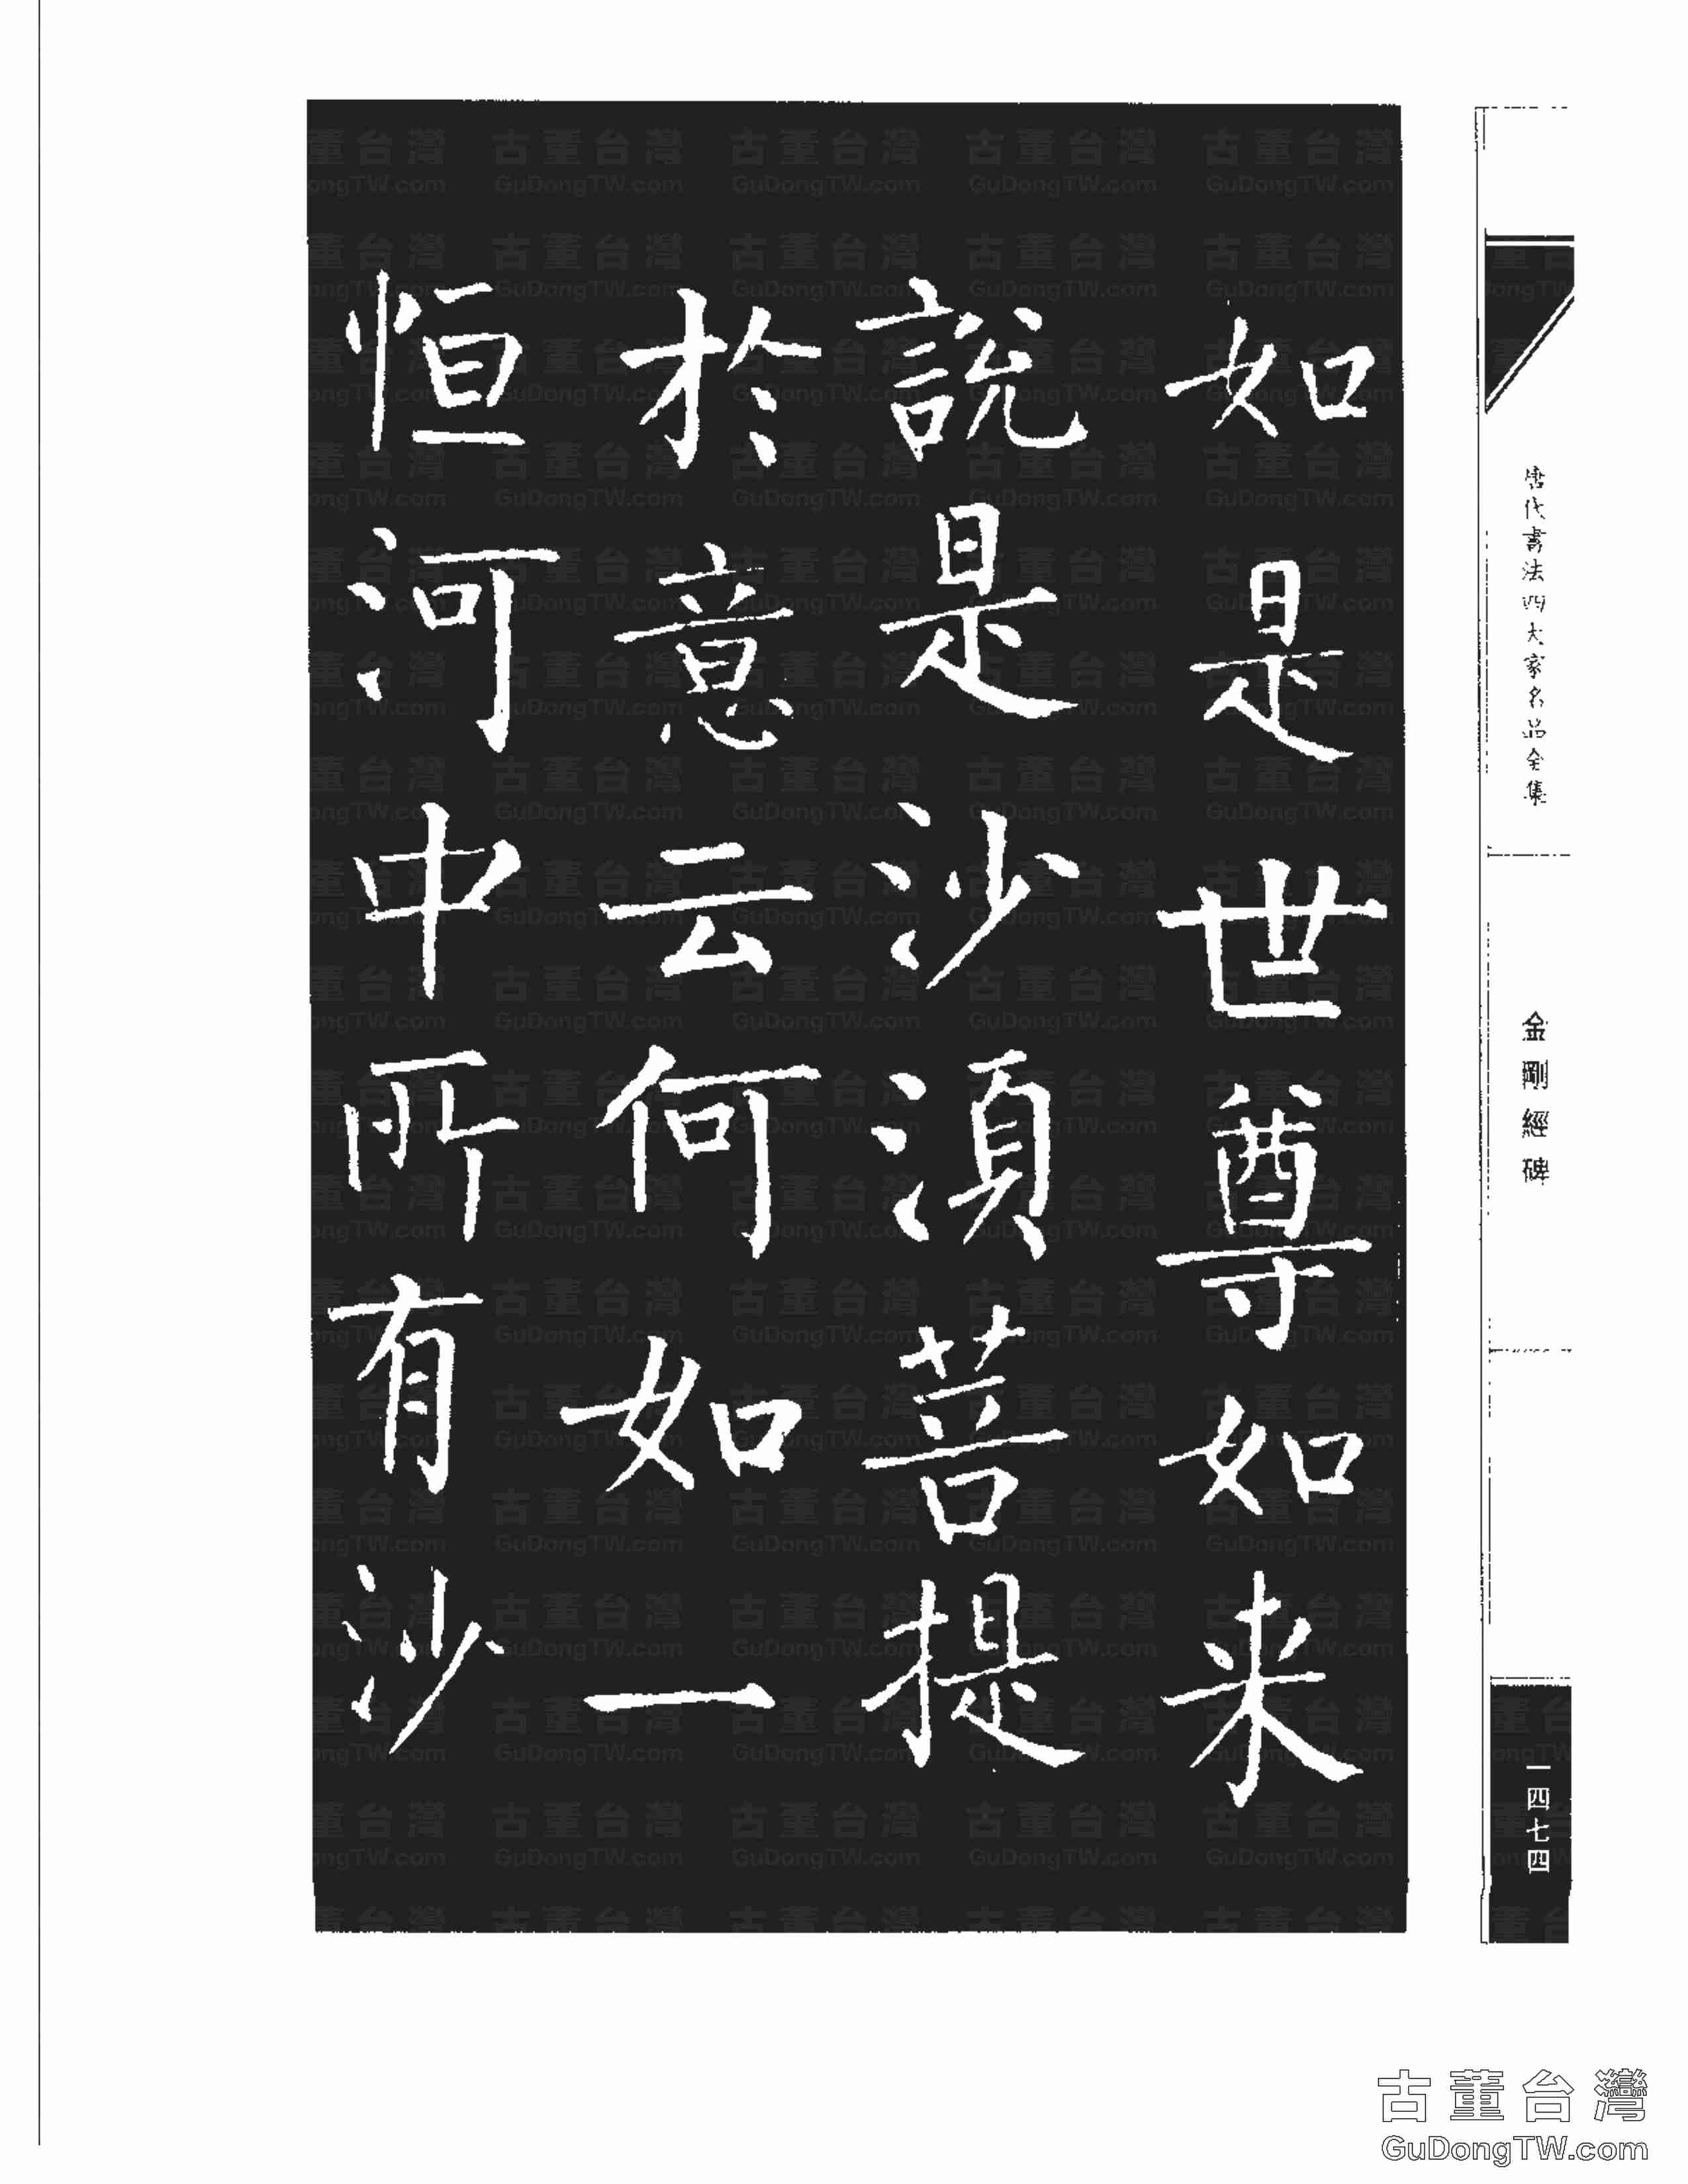 如是世尊如来
說是沙湏菩提
於意云何如一
恒河中所有沙
唐代書法四大家名品全集
金剛經碑
一四七四
古董台灣
GuDongTW.com